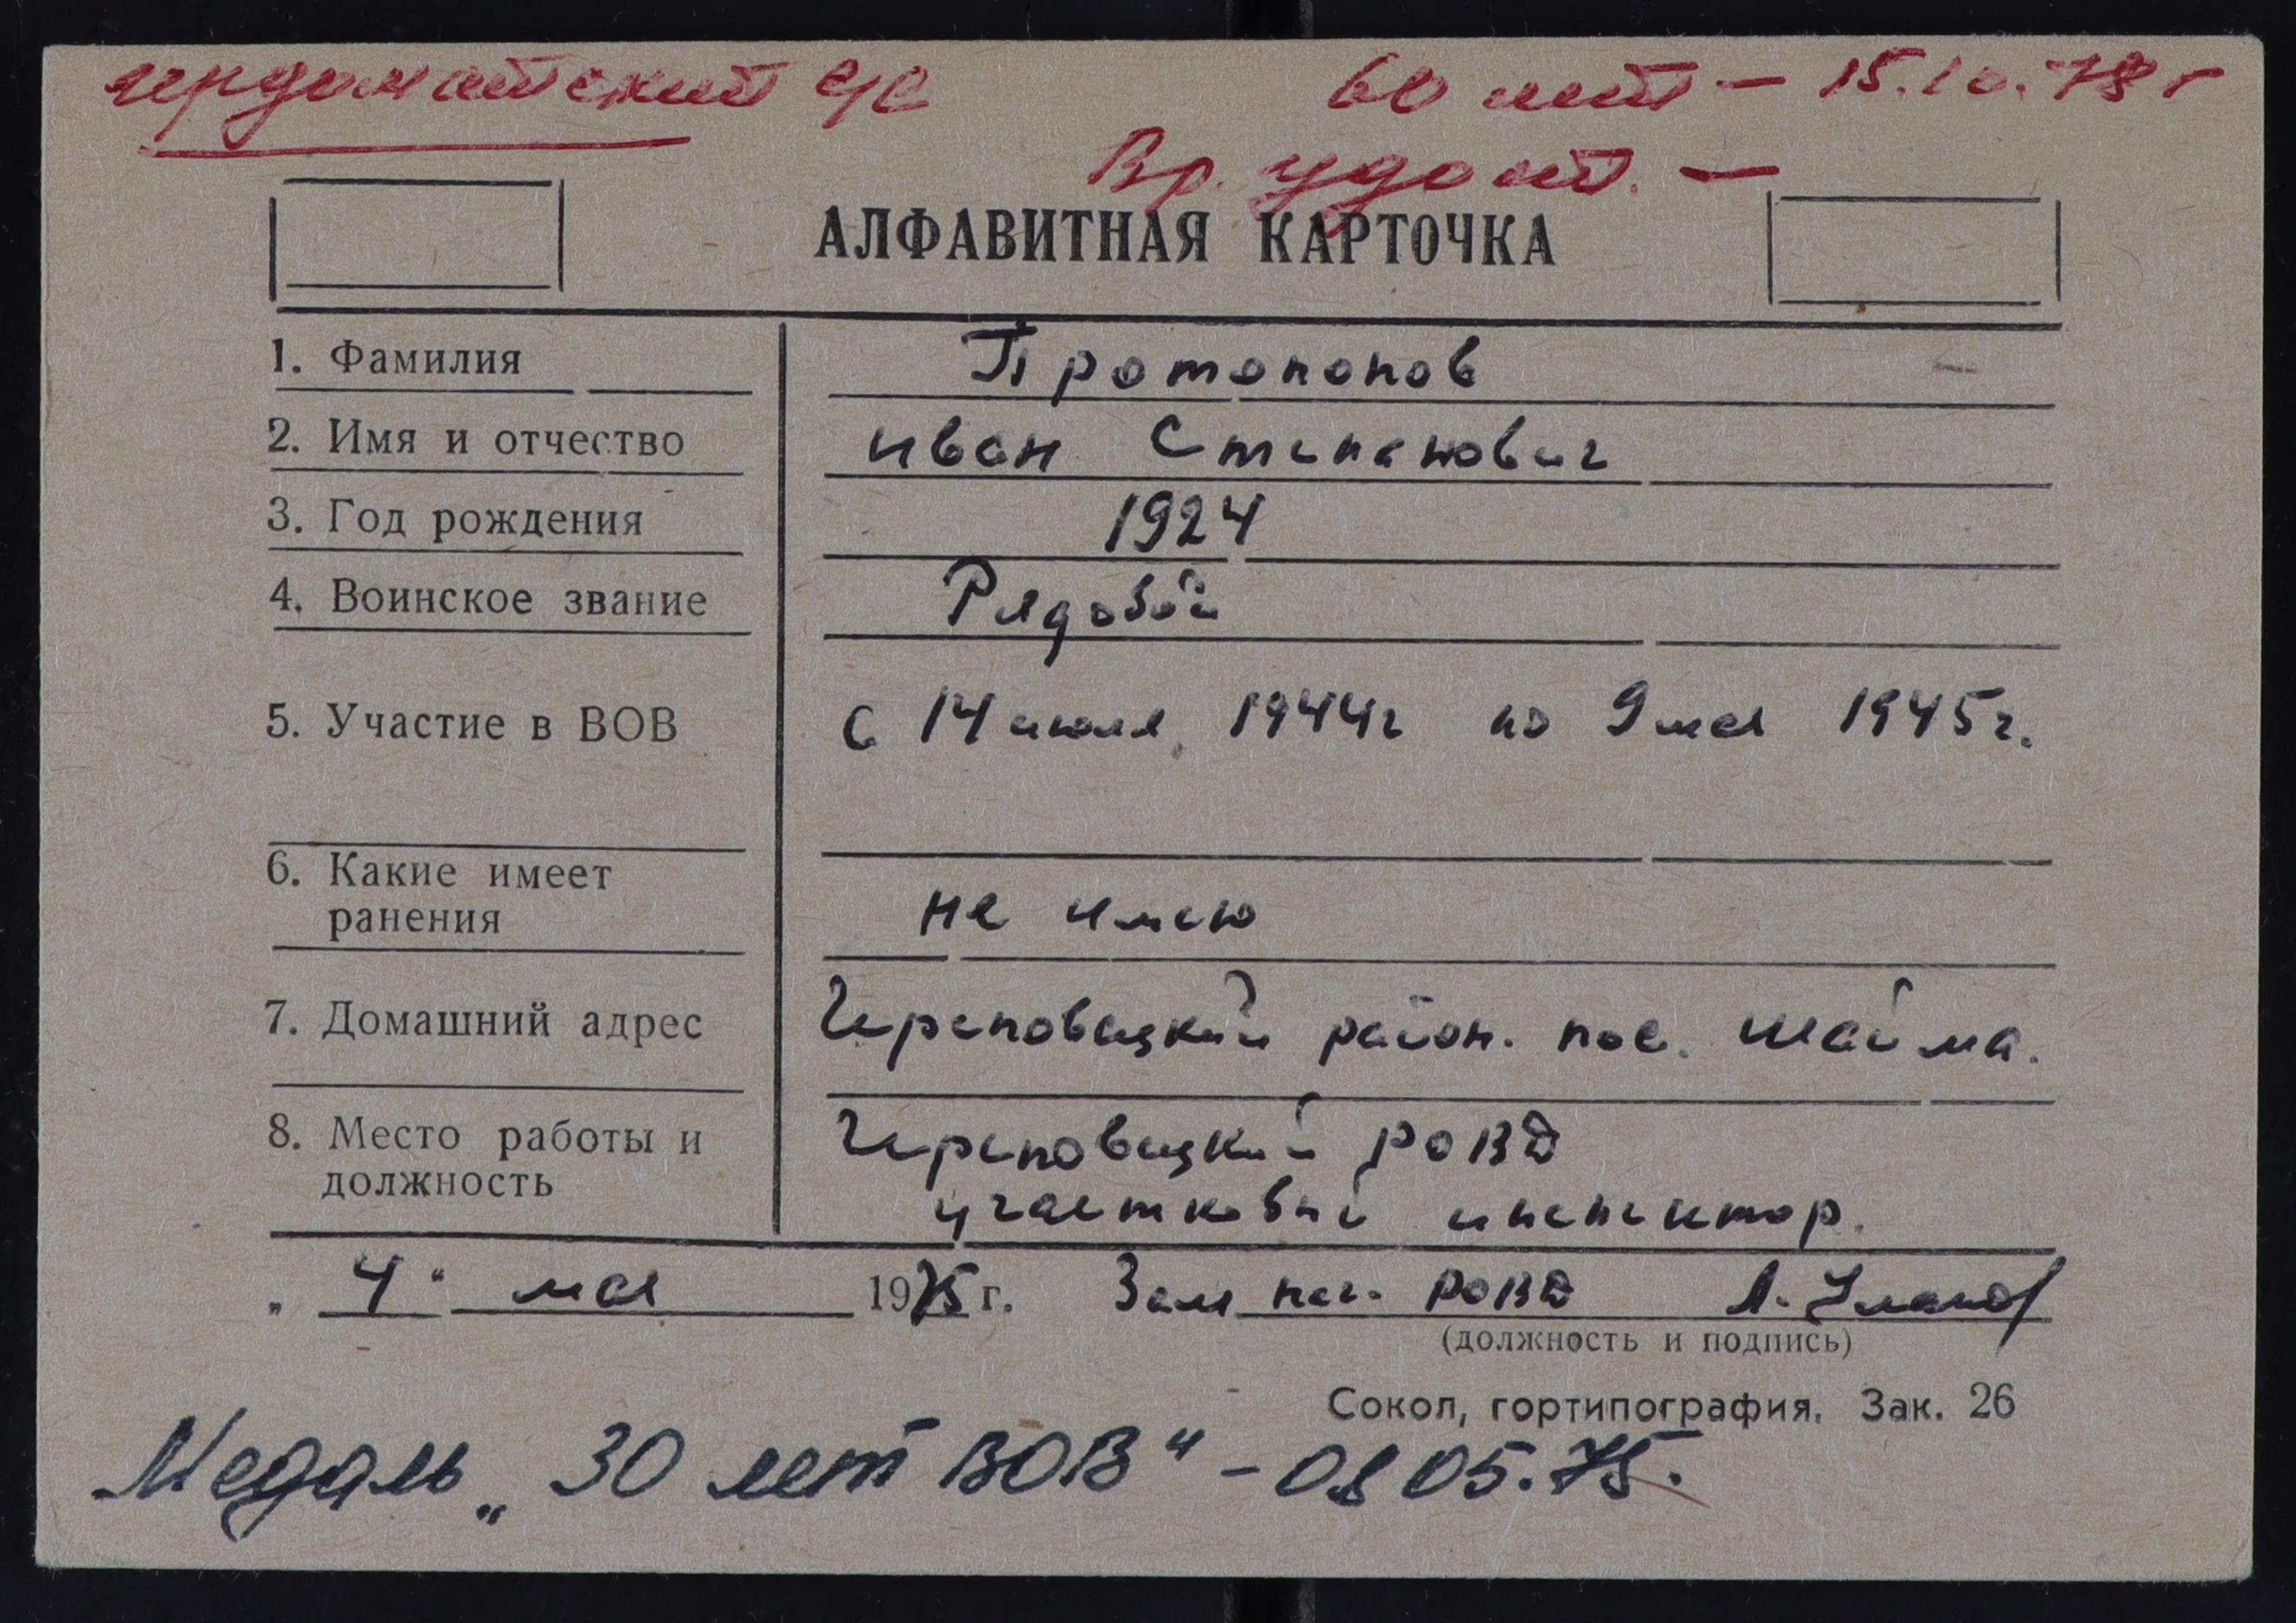 ирдоматский с/с 60 лет — 15.10.78 г
Вр. удост. —
АЛФАВИТНАЯ КАРТОЧКА
1. Фамилия Протопопов
2. Имя и отчество Иван Степанович
3. Год рождения 1924
4. Воинское звание Рядовой
5. Участие в ВОВ с 14 июля 1944г по 9 мая 1945г.
6. Какие имеет
ранения не имею
7. Домашний адрес Череповецкий район. пос. Шайма.
8. Место работы и Череповецкий РОВД
должность участковый инспектор.
„ 4 " мая 1975 г. Зам нач. РОВД
(должность и подпись)
Сокол, гортипография. Зак. 26
Медаль „30 лет ВОВ" - 08 05.75.